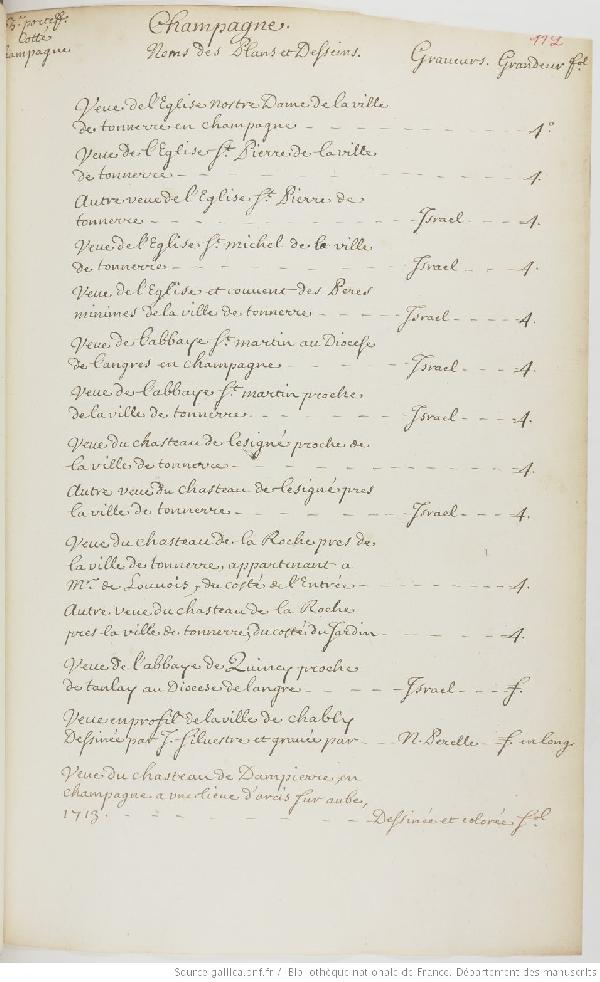 3e porteff. Champagne. 112
Cotté
Champagne Noms des Plans et Desseins. Graveurs. Grandeur fol.
Veue de l'Eglise nostre Dame de la ville
de tonnerre en champagne - - - - - - 4°
Veue de l'Eglise St Pierre de la ville
de tonnerre - - - - - - 4.
Autre veue de l'Eglise St Pierre de
tonnerre - - - - - - Israel - - - - 4.
Veue de l'Eglise St michel de la ville
de tonnerre - - - - - - Israel - - - - 4.
Veue de l'Eglise et couvent des Peres
minimes de la ville de tonnerre - - - - Israel - - - - 4.
Veue de l'abbaye St martin au Diocese
de langres en champagne - - - - Israel - - - - 4.
Veue de l'abbaye St martin proche
de la ville de tonnerre - - - - Israel - - - - 4.
Veue du chasteau de lesigné proche de
la ville de tonnerre - - - - - - 4.
Autre veue du chasteau de lesigné pres
la ville de tonnerre - - - - Israel - - - - 4.
Veue du chasteau de la Roche pres de
la ville de tonnerre, appartenant a
Mr. de Louvois, du costé de l'Entrée - - - - 4.
Autre veue du chasteau de la Roche
pres la ville de tonnerre, du costé du Jardin - - - - 4.
Veue de l'abbaye de Quincy proche
de tanlay au Diocese de langre - - - - Israel - - - f.
Veue en profil de la ville de chably
Dessinée par J. Silvestre et gravée par - - N. Perelle - - f. en long
Veue du chasteau de Dampierre en
champagne a une lieue d'arcis sur aube,
1713. - - - - - - Dessinée et colorée fol
Source gallica.bnf.fr / Bibliothèque nationale de France. Département des manuscrits